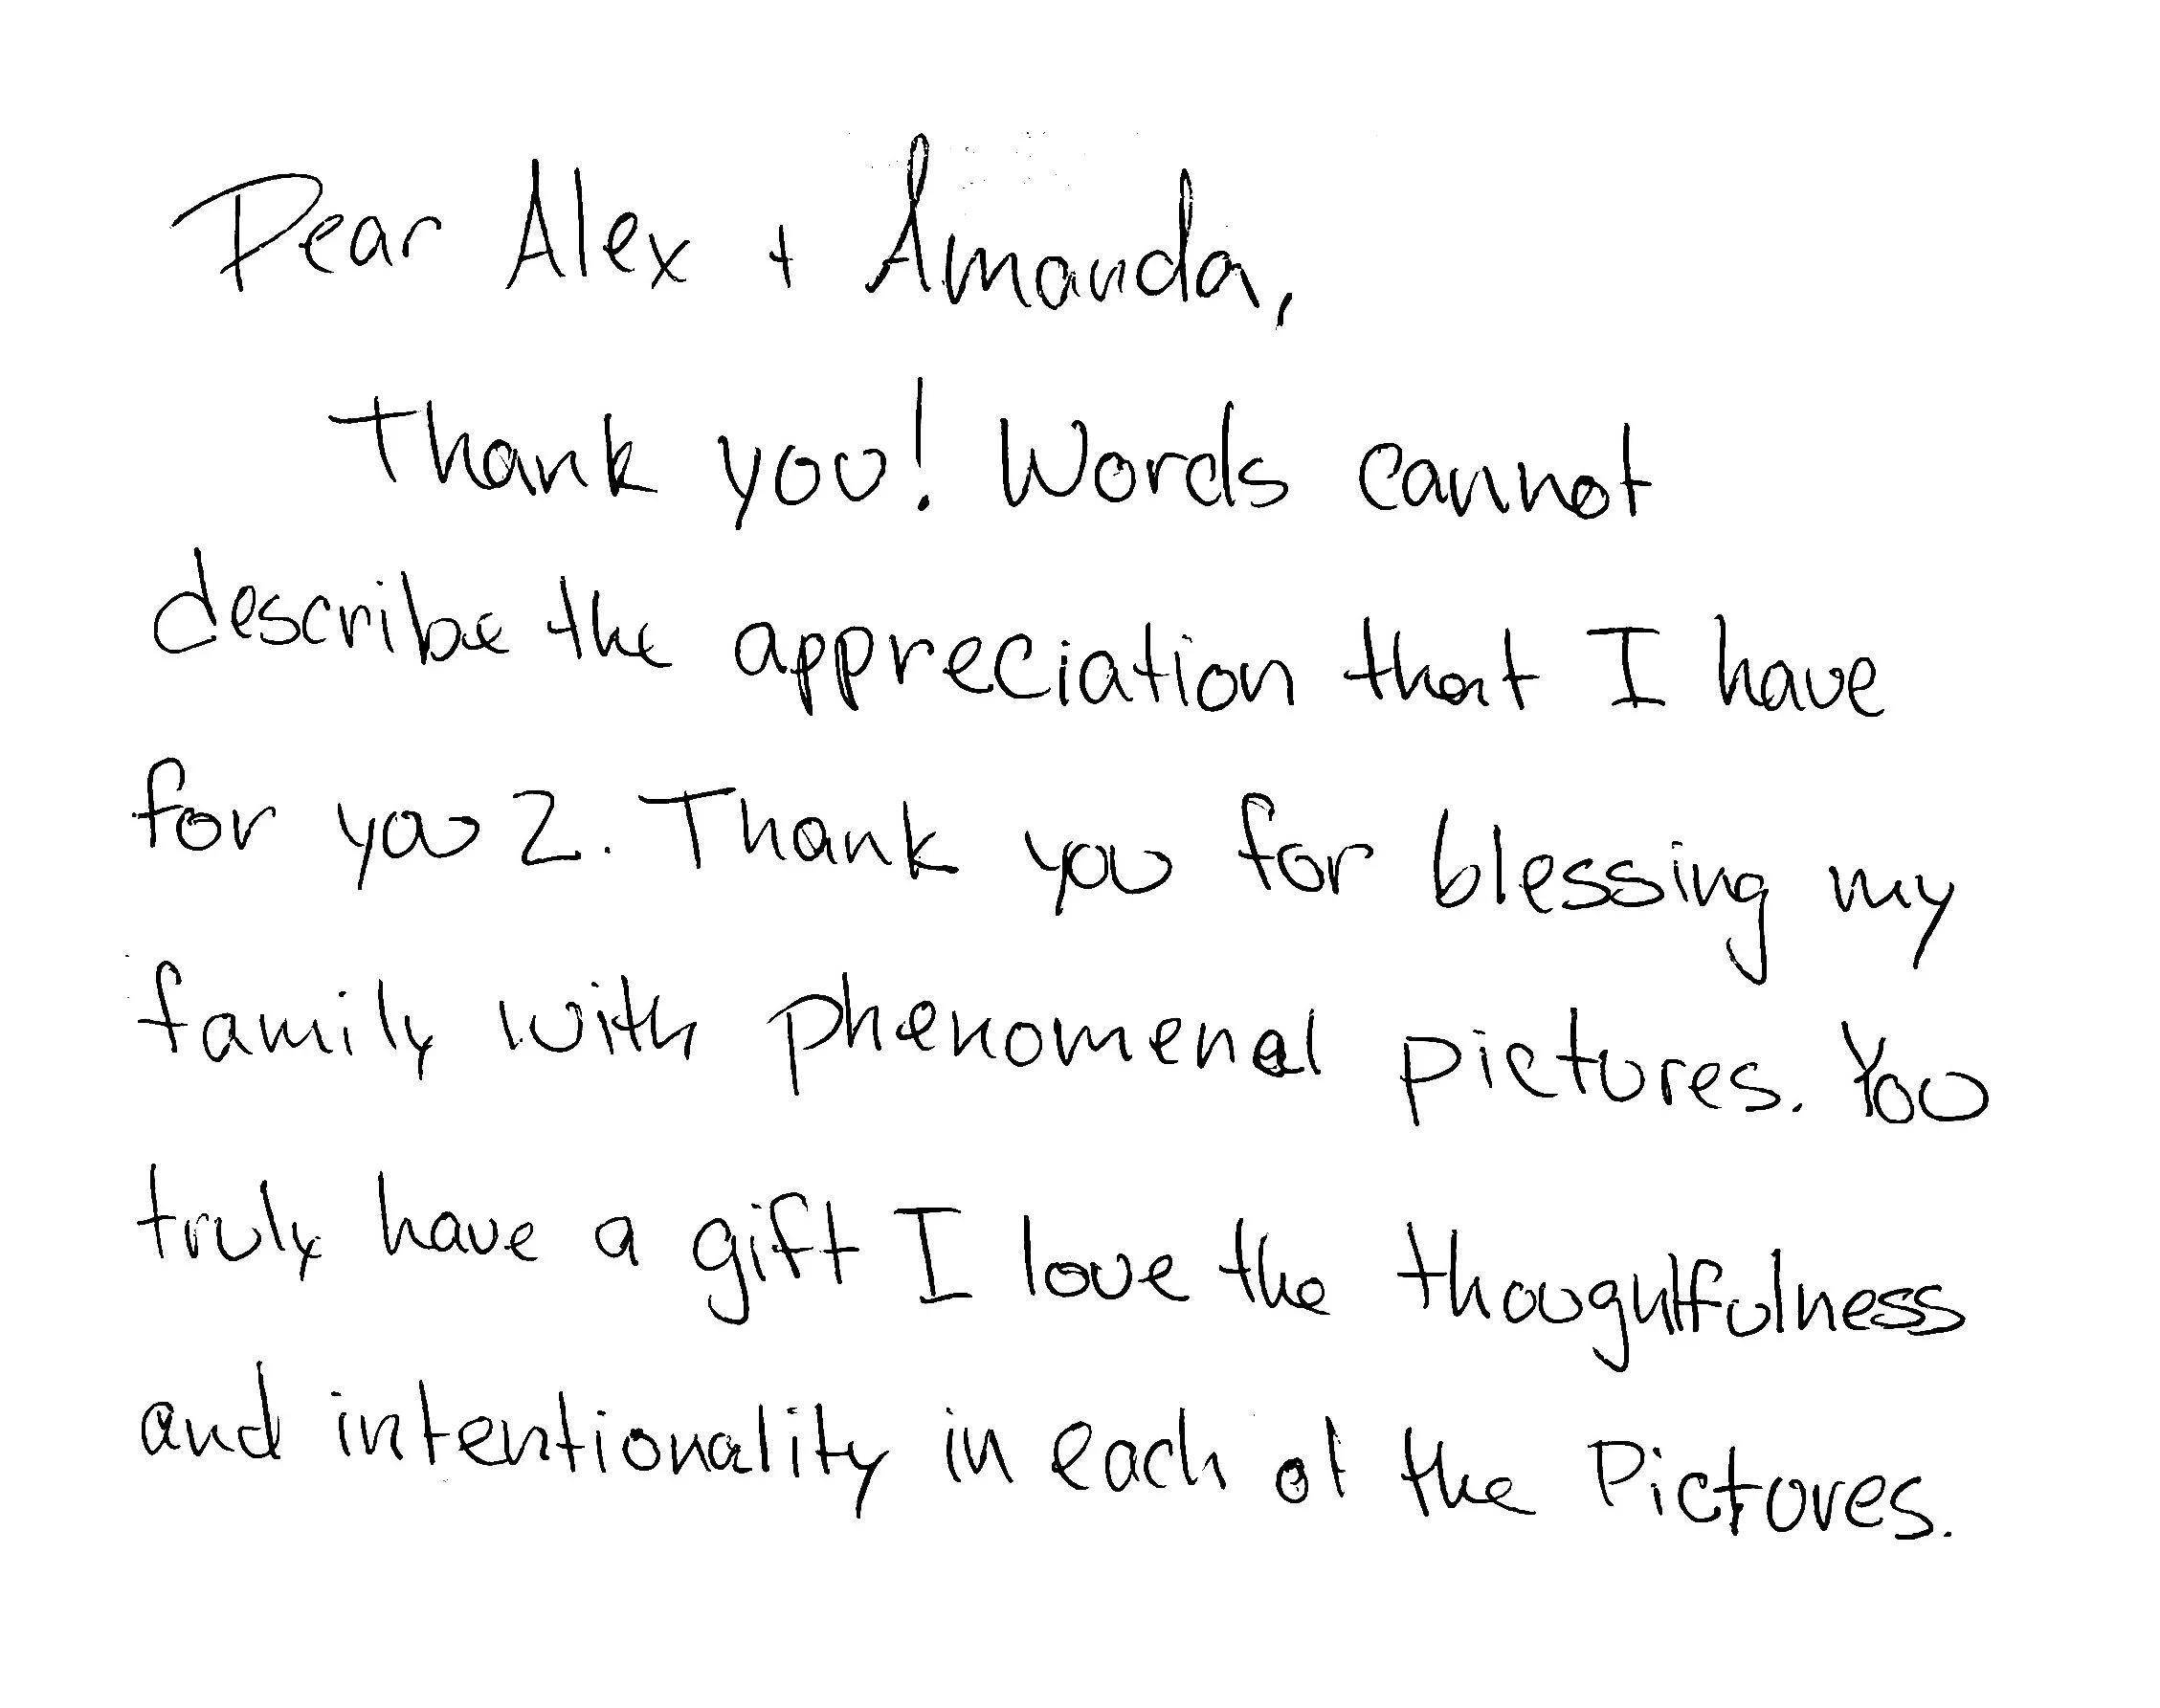 Dear Alex + Amanda,
Thank you! Words cannot
describe the appreciation that I have
for you 2. Thank you for blessing my
family with phenomenal pictures. You
truly have a gift I love the thoughtfulness
and intentionality in each of the Pictures.